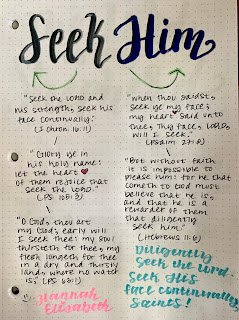 Seek Him
"Seek the LORD and
his strength, seek his
face continually."
(I Chron. 16:11)
"Glory ye in
his holy name:
let the heart
of them rejoice that
seek the LORD."
(PS 105:3)
"O God, thou art
my God; early will
I seek thee: my soul
thirsteth for thee, my
flesh longeth for thee
in a dry and thirsty
land, where no water
is;" (PS 63:1)
Hannah
Elisabeth
"When thou saidst,
Seek ye my face;
my heart said unto
thee, Thy face, LORD,
will I seek."
(Psalm 27:8)
"But without faith
it is impossible to
please him: for he that
cometh to God must
believe that he is,
and that he is a
rewarder of them
that diligently
seek him."
(Hebrews 11:6)
Diligently
Seek the Lord.
Seek His
face continually
Saints!